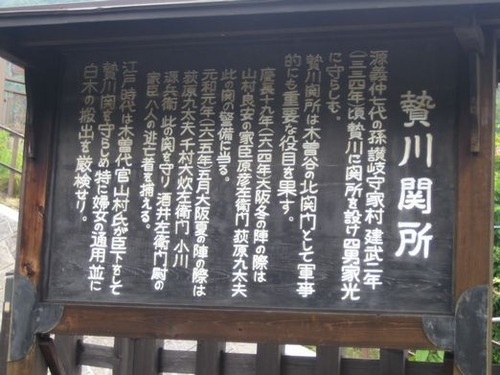 贄川関所
源義仲七代の孫讃岐守家村 建武二年
(一三三四年頃贄川に関所を設け四男家光
に守らしむ。
贄川関所は木曽谷の北関門として軍事
的にも重要な役目を果す。
慶長十九年(一六一四年)大阪冬の陣の際は
山村良安の家臣原彦左衛門 荻原九太夫
此の関の警備に当る。
元和元年(一六一五年)五月大阪夏の陣の際は
荻原九太夫 千村大炊左衛門 小川
源兵衛 此の関を守り 酒井左衛門尉の
家臣八人の逃亡者を捕える。
江戸時代は木曽代官山村氏が臣下をして
贄川関を守らしめ特に婦女の通用並に
白木の搬出を厳検せり。